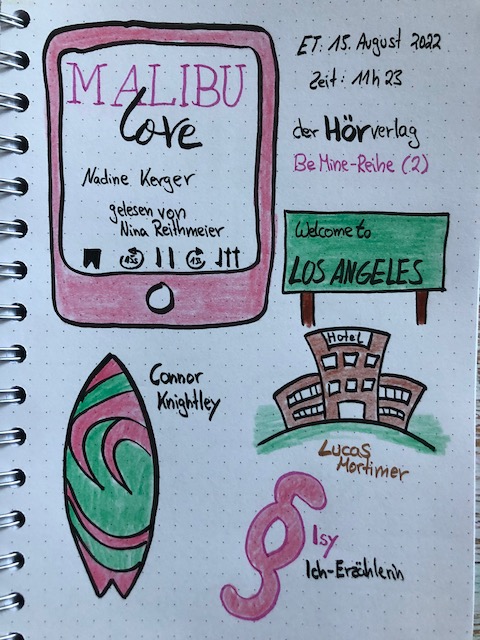 MALIBU
Love
Nadine Kerger
gelesen von
Nina Reithmeier
ET: 15. August 2022
Zeit: 11h 23
der Hörverlag
Be Mine-Reihe (2)
Welcome to
LOS ANGELES
Connor
Knightley
Hotel
Lucas
Mortimer
§
Isy
Ich-Erzählerin